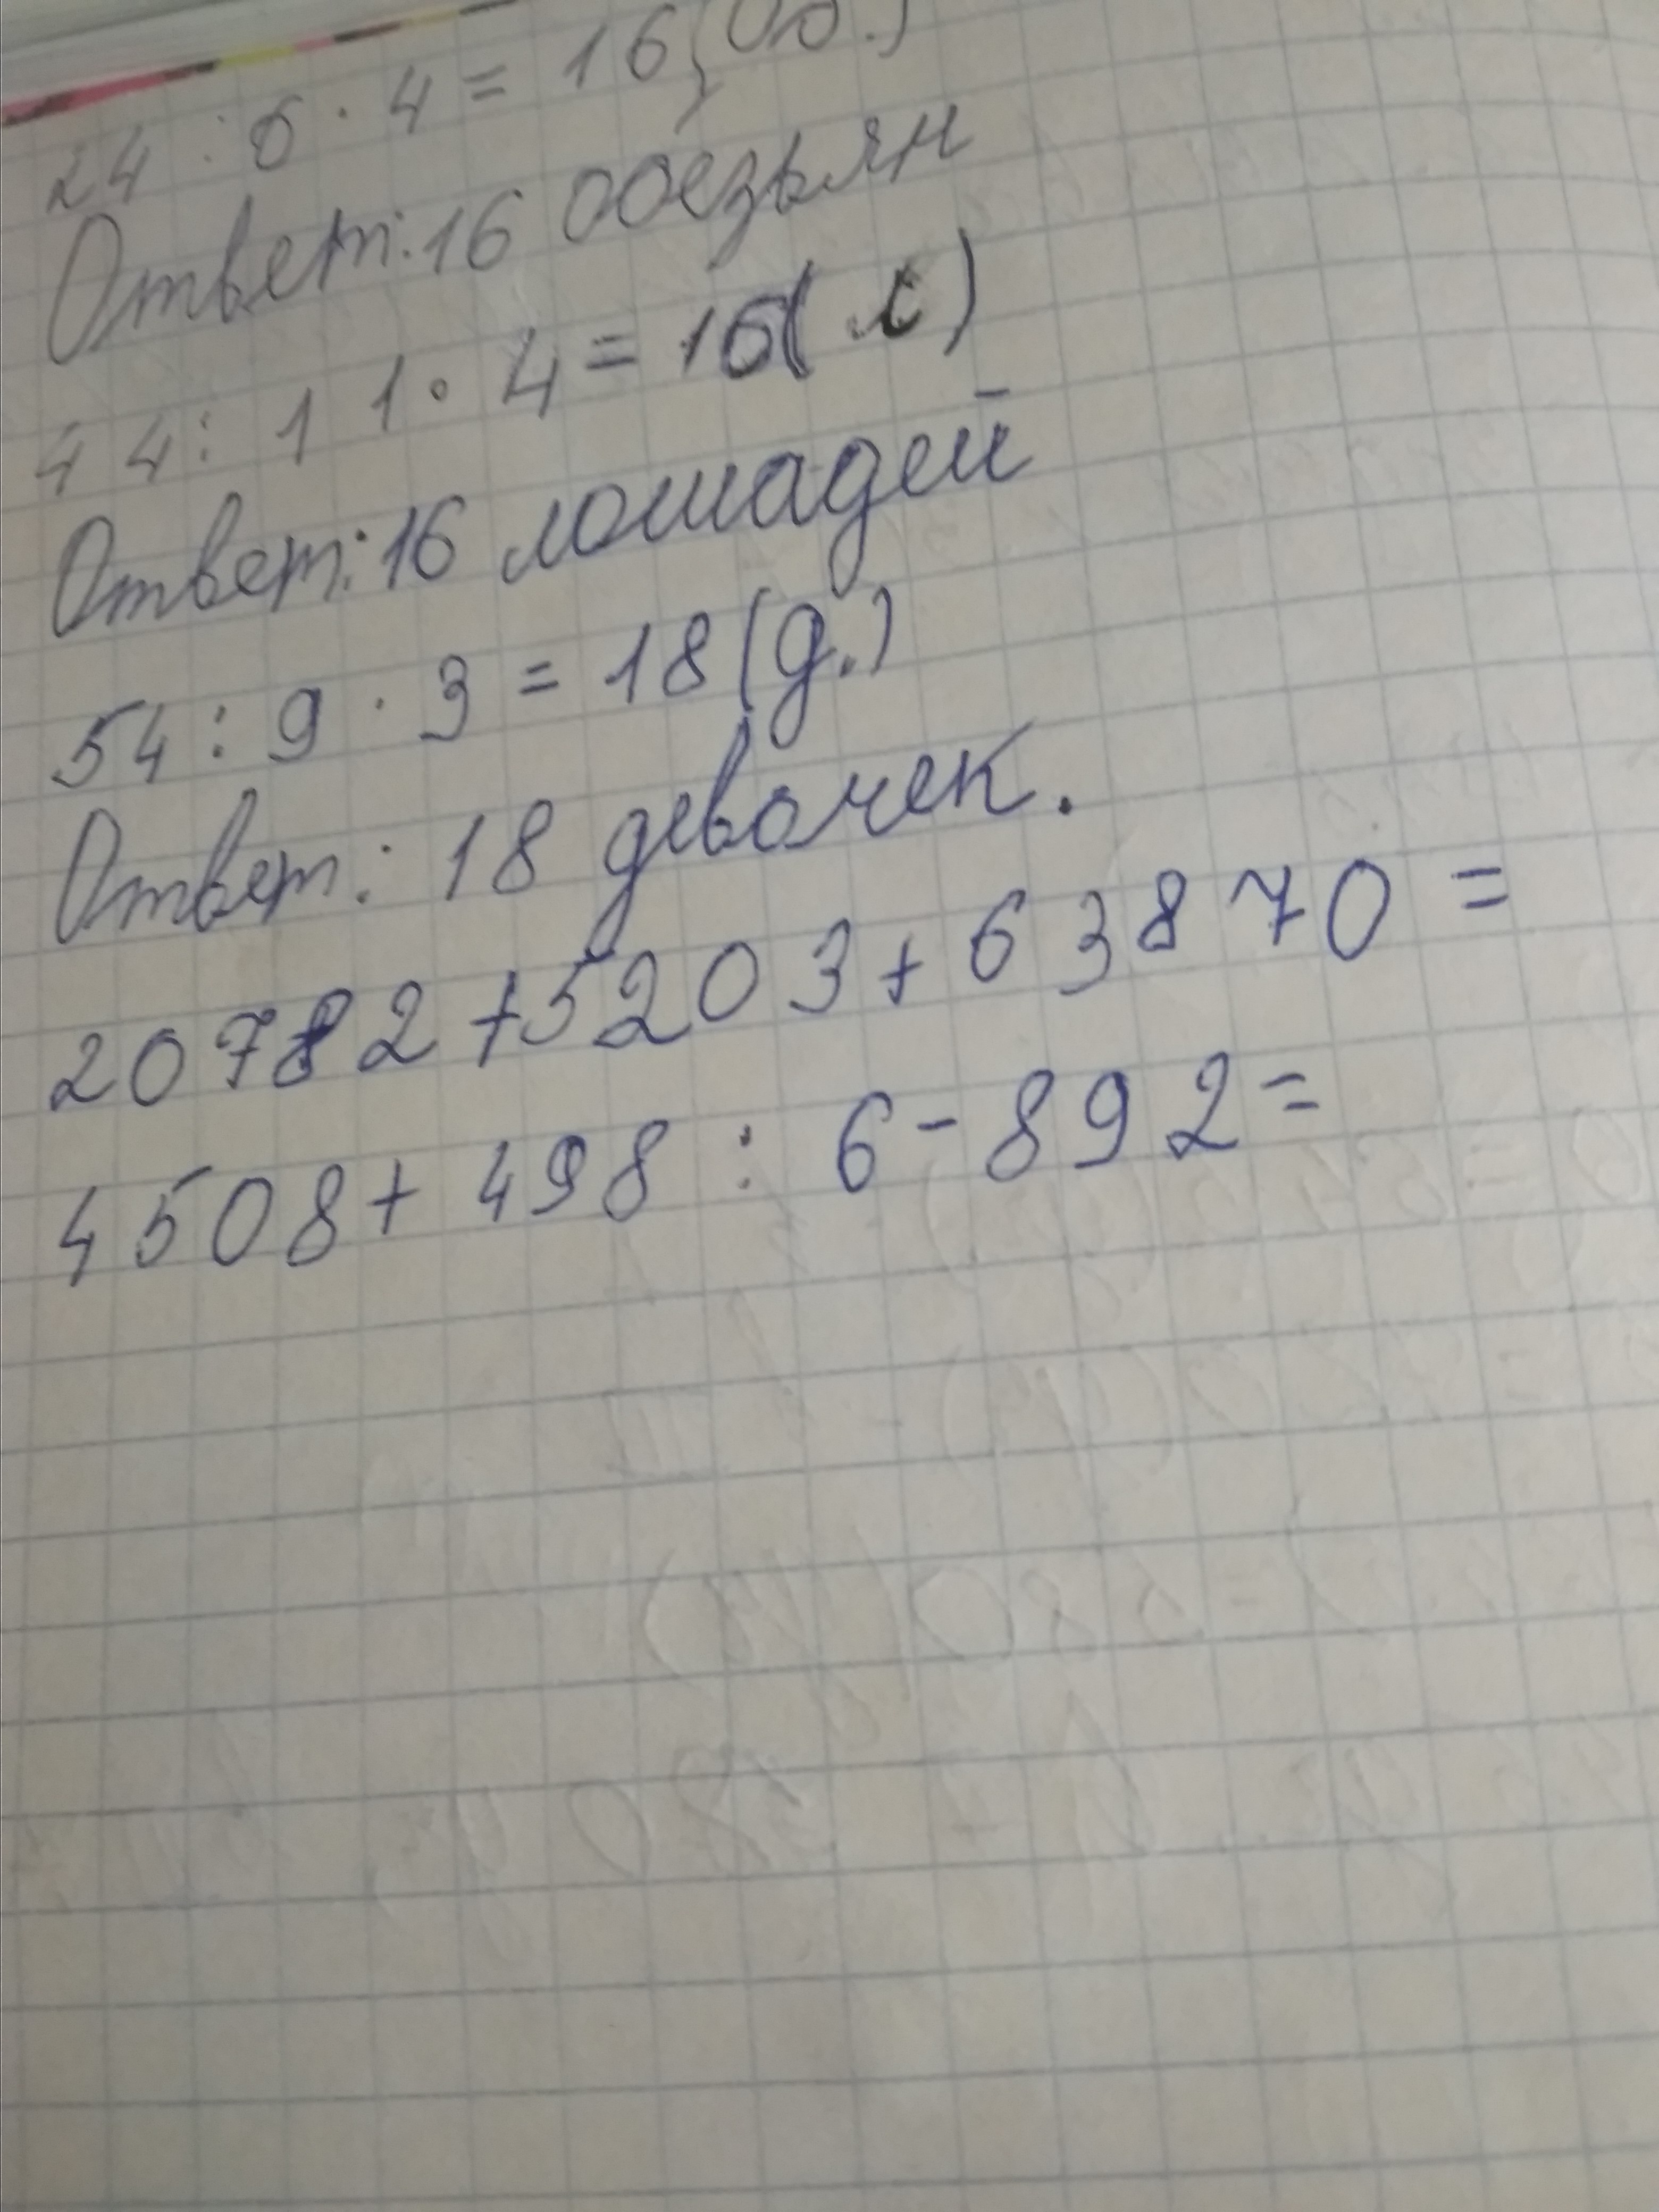 24 : 6 · 4 = 16 (об.)
Ответ: 16 обезьян
44 : 11 · 4 = 16 (л)
Ответ: 16 лошадей
54 : 9 · 3 = 18 (д.)
Ответ: 18 девочек.
20782 + 5203 + 63870 =
4508 + 498 : 6 - 892 =